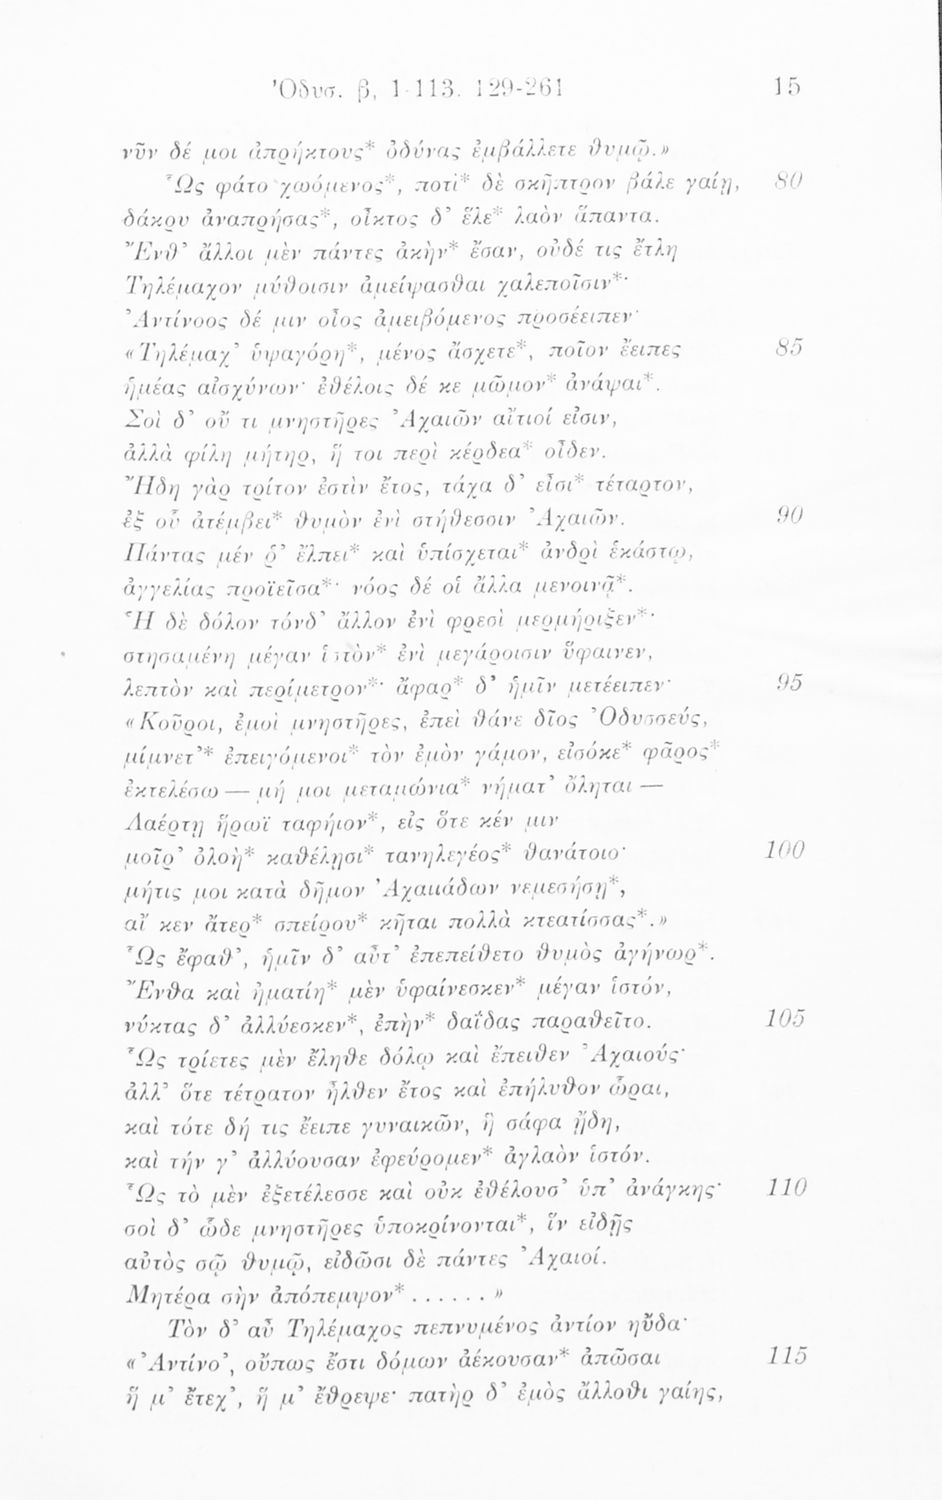 Ὀδυσ. β, 1-113. 129-261 15
νῦν δέ μοι ἀπρήκτους* ὀδύνας ἐμβάλλετε θυμῷ.»
Ὣς φάτο χωόμενος*, ποτὶ* δὲ σκῆπτρον βάλε γαίῃ, 80
δάκρυ ἀναπρήσας*, οἶκτος δ' ἕλε* λαὸν ἅπαντα.
Ἔνθ' ἄλλοι μὲν πάντες ἀκὴν* ἔσαν, οὐδέ τις ἔτλη
Τηλέμαχον μύθοισιν ἀμείψασθαι χαλεποῖσιν*·
Ἀντίνοος δέ μιν οἶος ἀμειβόμενος προσέειπεν·
«Τηλέμαχ' ὑψαγόρη*, μένος ἄσχετε*, ποῖον ἔειπες 85
ἡμέας αἰσχύνων· ἐθέλοις δέ κε μῶμον* ἀνάψαι*.
Σοὶ δ' οὔ τι μνηστῆρες Ἀχαιῶν αἴτιοί εἰσιν,
ἀλλὰ φίλη μήτηρ, ἥ τοι περὶ κέρδεα* οἶδεν.
Ἤδη γὰρ τρίτον ἐστὶν ἔτος, τάχα δ' εἶσι* τέταρτον,
ἐξ οὗ ἀτέμβει* θυμὸν ἐνὶ στήθεσσιν Ἀχαιῶν. 90
Πάντας μέν ῥ' ἔλπει* καὶ ὑπίσχεται* ἀνδρὶ ἑκάστῳ,
ἀγγελίας προϊεῖσα*· νόος δέ οἱ ἄλλα μενοινᾷ*.
Ἡ δὲ δόλον τόνδ' ἄλλον ἐνὶ φρεσὶ μερμήριξεν*·
στησαμένη μέγαν ἱστὸν* ἐνὶ μεγάροισιν ὕφαινεν,
λεπτὸν καὶ περίμετρον*· ἄφαρ* δ' ἡμῖν μετέειπεν· 95
«Κοῦροι, ἐμοὶ μνηστῆρες, ἐπεὶ θάνε δῖος Ὀδυσσεύς,
μίμνετ'* ἐπειγόμενοι* τὸν ἐμὸν γάμον, εἰσόκε* φᾶρος*
ἐκτελέσω — μή μοι μεταμώνια* νήματ' ὄληται —
Λαέρτῃ ἥρωϊ ταφήιον*, εἰς ὅτε κέν μιν
μοῖρ' ὀλοὴ* καθέλῃσι* τανηλεγέος* θανάτοιο· 100
μήτις μοι κατὰ δῆμον Ἀχαιιάδων νεμεσήσῃ*,
αἴ κεν ἄτερ* σπείρου* κῆται πολλὰ κτεατίσσας*.»
Ὣς ἔφαθ', ἡμῖν δ' αὖτ' ἐπεπείθετο θυμὸς ἀγήνωρ*.
Ἔνθα καὶ ἠματίη* μὲν ὑφαίνεσκεν* μέγαν ἱστόν,
νύκτας δ' ἀλλύεσκεν*, ἐπὴν* δαΐδας παραθεῖτο. 105
Ὣς τρίετες μὲν ἔληθε δόλῳ καὶ ἔπειθεν Ἀχαιούς·
ἀλλ' ὅτε τέτρατον ἦλθεν ἔτος καὶ ἐπήλυθον ὧραι,
καὶ τότε δή τις ἔειπε γυναικῶν, ἣ σάφα ᾔδη,
καὶ τήν γ' ἀλλύουσαν ἐφεύρομεν* ἀγλαὸν ἱστόν.
Ὣς τὸ μὲν ἐξετέλεσσε καὶ οὐκ ἐθέλουσ' ὑπ' ἀνάγκης· 110
σοὶ δ' ὧδε μνηστῆρες ὑποκρίνονται*, ἵν εἰδῇς
αὐτὸς σῷ θυμῷ, εἰδῶσι δὲ πάντες Ἀχαιοί.
Μητέρα σὴν ἀπόπεμψον* . . . . . . »
Τὸν δ' αὖ Τηλέμαχος πεπνυμένος ἀντίον ηὔδα·
«Ἀντίνο', οὔπως ἔστι δόμων ἀέκουσαν* ἀπῶσαι 115
ἥ μ' ἔτεχ', ἥ μ' ἔθρεψε· πατὴρ δ' ἐμὸς ἄλλοθι γαίης,